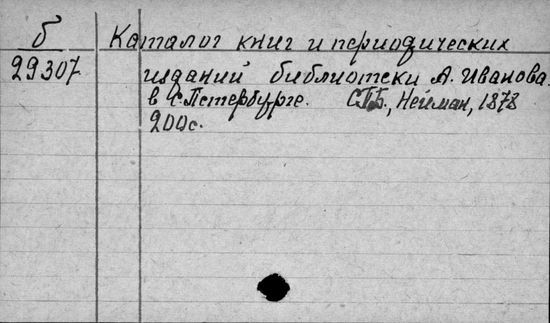 б
29307
Каталог книг и периодических
изданий библиотеки А. Иванова.
в С.Петербурге. СПБ., Нейман, 1878
200с.